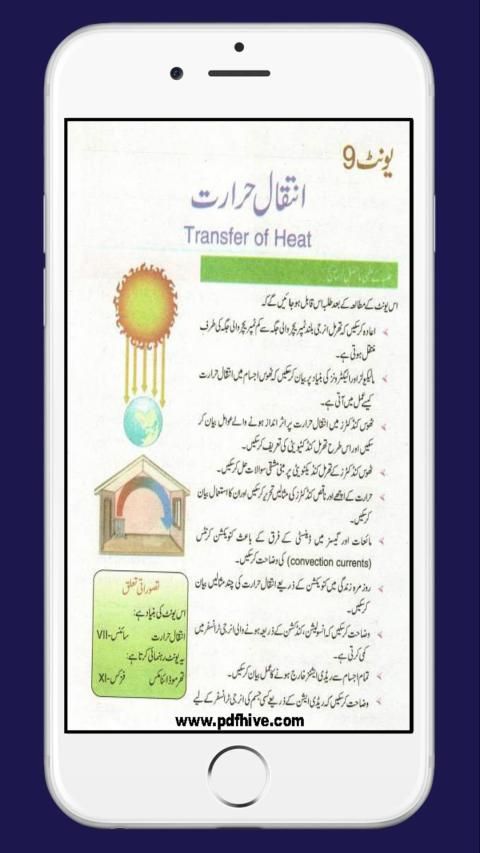 یونٹ 9
انتقال حرارت
Transfer of Heat
اس یونٹ کے مطالعہ کے بعد طلبہ اس قابل ہو جائیں گے کہ
اعادہ کر سکیں کہ تھرمل انرجی بلند ٹمپریچر والی جگہ سے کم ٹمپریچر والی جگہ کی طرف
منتقل ہوتی ہے۔
مالیکیولز اور الیکٹرونز کی بنیاد پر بیان کر سکیں کہ ٹھوس اجسام میں انتقال حرارت
کیسے عمل میں آتی ہے۔
ٹھوس کنڈکٹرز میں انتقال حرارت پر اثر انداز ہونے والے عوامل بیان کر
سکیں اور اس طرح تھرمل کنڈکٹیویٹی کی تعریف کر سکیں۔
ٹھوس کنڈکٹرز کے تھرمل کنڈکٹیویٹی پر مبنی مشقی سوالات حل کر سکیں۔
حرارت کے اچھے اور ناقص کنڈکٹرز کی مثالیں تحریر کر سکیں اور ان کا استعمال بیان
کر سکیں۔
مائعات اور گیسز میں ڈینسٹی کے فرق کے باعث کنویکشن کرنٹس
(convection currents) کی وضاحت کر سکیں۔
روز مرہ زندگی میں کنویکشن کے ذریعے انتقال حرارت کی چند مثالیں بیان
کر سکیں۔
وضاحت کر سکیں کہ انسولیشن، کنڈکشن کے ذریعہ ہونے والی انرجی ٹرانسفر میں
کمی کرتی ہے۔
تمام اجسام سے ریڈی ایشنز خارج ہونے کا عمل بیان کر سکیں۔
وضاحت کر سکیں کہ ریڈی ایشن کے ذریعے کسی جسم کی انرجی ٹرانسفر کے لیے
تصوراتی تعلق
اس یونٹ کی بنیاد ہے:
انتقال حرارت سائنس-VII
یہ یونٹ رہنمائی کرتا ہے:
تھرموڈائنامکس فزکس-XI
www.pdfhive.com